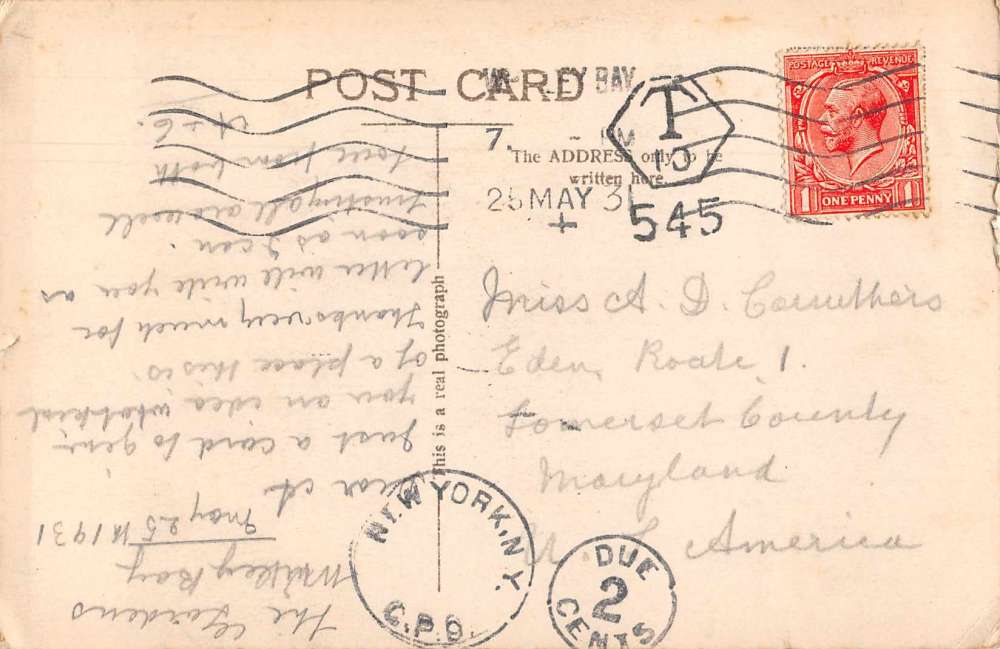 POST CARD
EY BAY
7. - PM
25 MAY 31
+
T
15
545
The ADDRESS only to be
written here.
POSTAGE REVENUE
1 ONE PENNY 1
This is a real photograph
Miss A. D. Carruthers
Eden, Route 1.
Somerset County
Maryland
U. S. America
NEW YORK, N.Y.
G.P.O.
DUE
2
CENTS
The Gardens
Whitley Bay
May 25th 1931
Dear A
Just a card to give
you an idea what kind
of a place this is.
Thanks very much for
letter will write you as
soon as I can.
Trusting all are well
love from both
A + C.